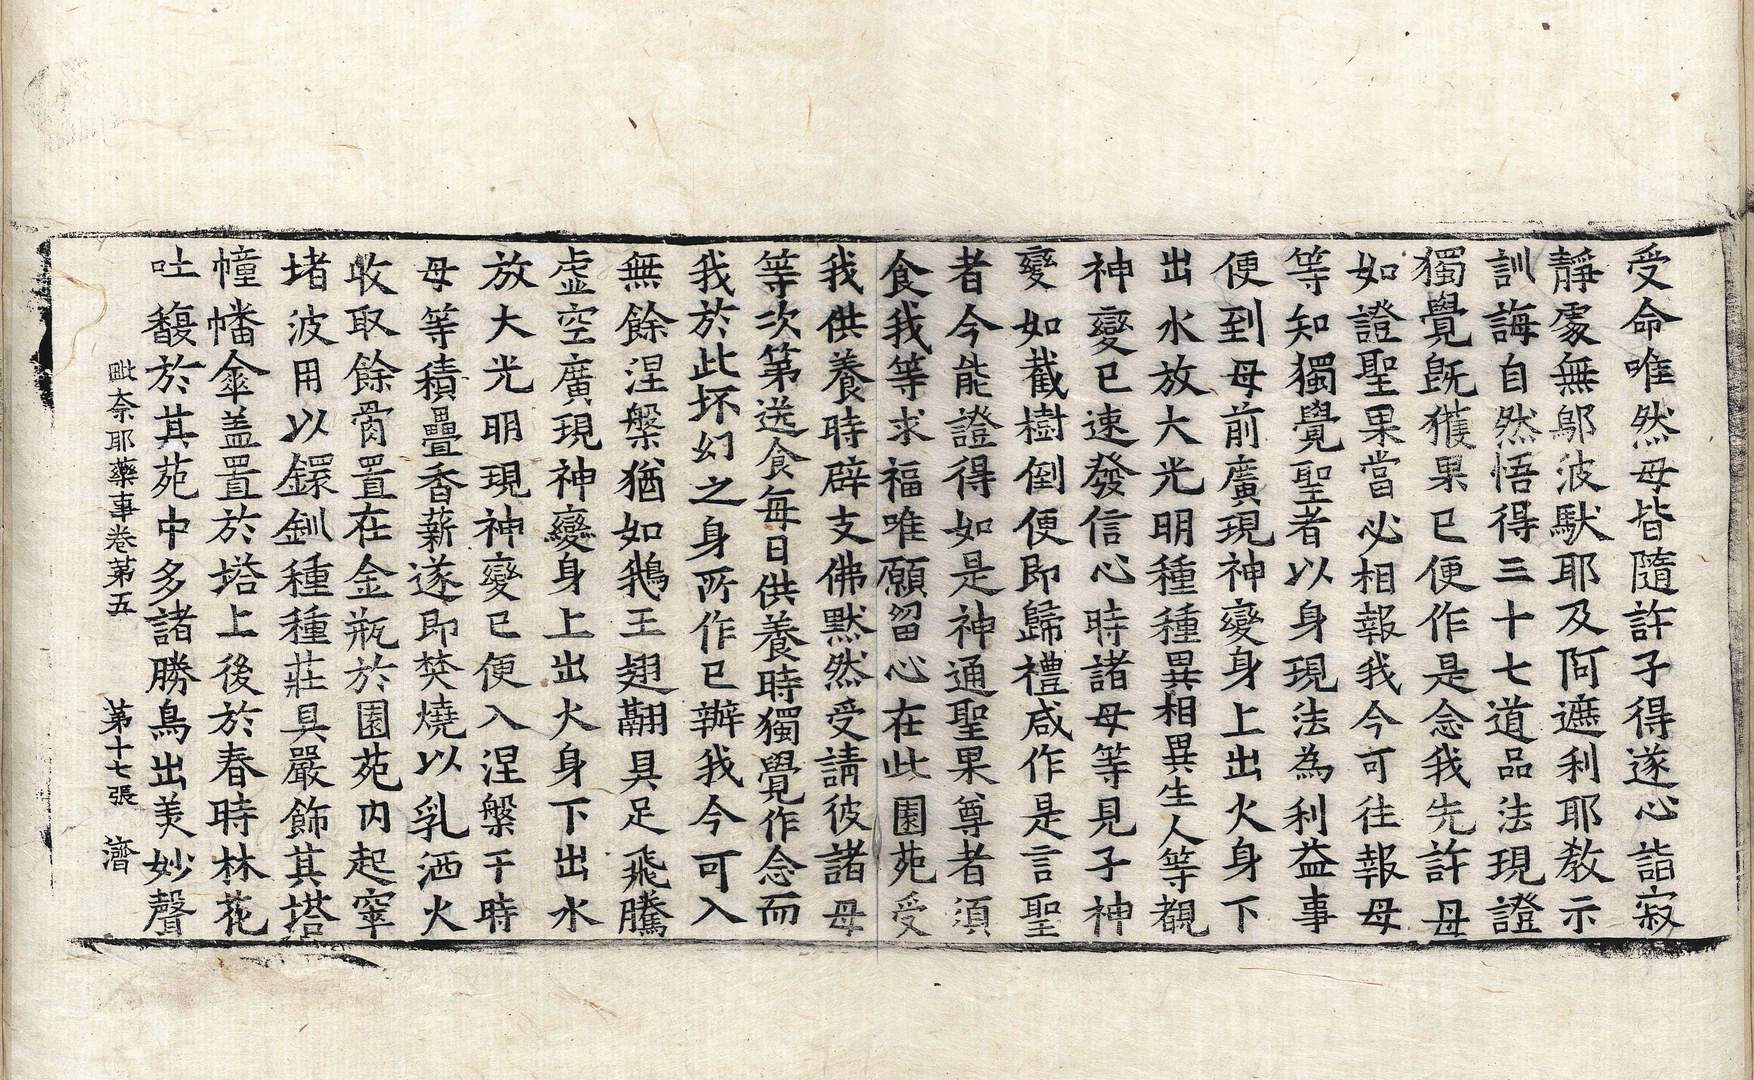 受命唯然母皆隨許子得遂心詣寂
靜處無鄔波馱耶及阿遮利耶教示
訓誨自然悟得三十七道品法現證
獨覺旣獲果已便作是念我先許母
如證聖果當必相報我今可往報母
等知獨覺聖者以身現法為利益事
便到母前廣現神變身上出火身下
出水放大光明種種異相異生人等覩
神變已速發信心時諸母等見子神
變如截樹倒便即歸禮咸作是言聖
者今能證得如是神通聖果尊者須
食我等求福唯願留心在此園苑受
我供養時辟支佛默然受請彼諸母
等次第送食每日供養時獨覺作念而
我於此坏幻之身所作已辦我今可入
無餘涅槃猶如鵝王翅翮具足飛騰
虛空廣現神變身上出火身下出水
放大光明現神變已便入涅槃于時
母等積疊香薪遂即焚燒以乳洒火
收取餘骨置在金瓶於園苑內起窣
堵波用以鐶釧種種莊具嚴飾其塔
幢幡傘盖置於塔上後於春時林花
吐馥於其苑中多諸勝鳥出美妙聲
毗奈耶藥事卷第五 第十七張 濟